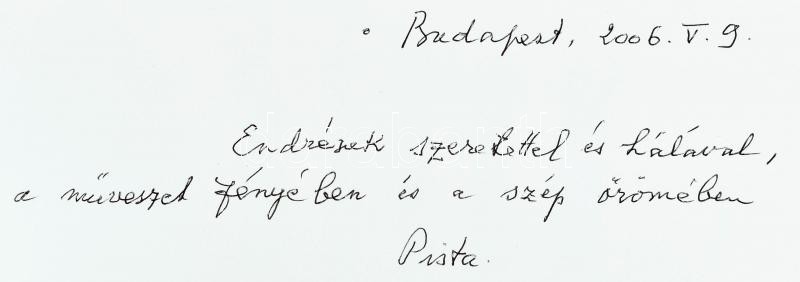 Budapest, 2006. V. 9.
Endrének szeretettel és hálával,
a művészet fényében és a szép örömében
Pista.